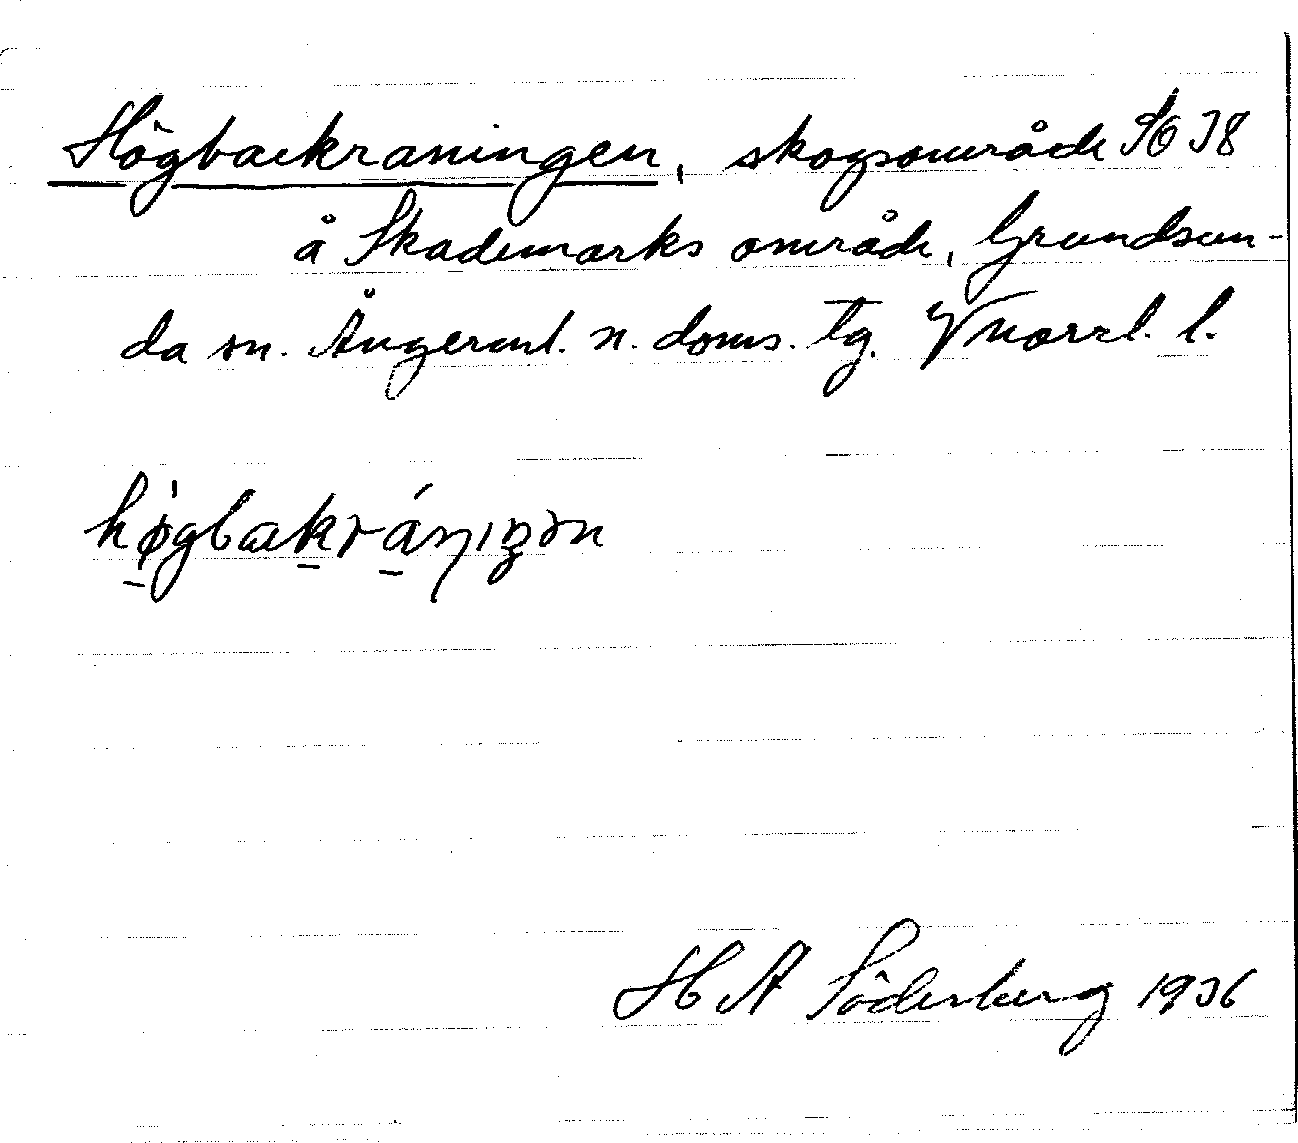 Högbackraningen, skogsområde SO 38
å Skademarks område, Grundsun-
da sn. Ångerml. n. doms. tg. Vnorrl. l.
høgbakránıŋən
H A Söderberg 1936